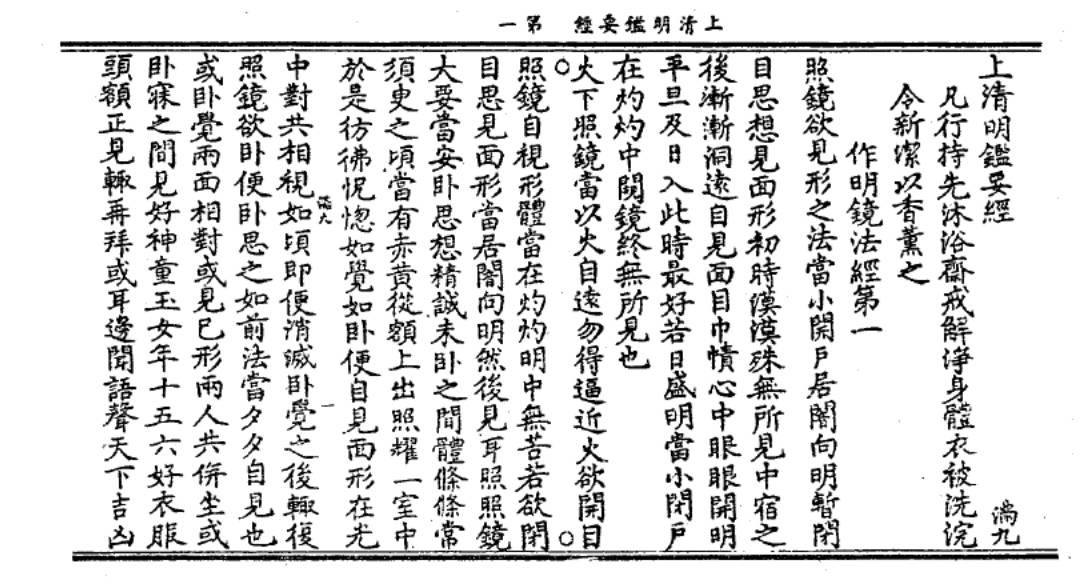 上清明鑑要經　第一
上清明鑑要經　滿九
凡行持先沐浴齋戒解淨身體衣被洗浣
令新潔以香薰之
作明鏡法經第一
照鏡欲見形之法當小開戶居闇向明暫閉
目思想見面形初時漠漠殊無所見中宿之
後漸漸洞遠自見面目巾幘心中眼眼開明
平旦及日入此時最好若日盛明當小閉戶
在灼灼中闚鏡終無所見也
○火下照鏡當以火自遠勿得逼近火欲開目○
照鏡自視形體當在灼灼明中無苦若欲閉
目思見面形當居闇向明然後見耳照照鏡
大要當安卧思想精誠未卧之間體條條常
須臾之頃當有赤黃從額上出照耀一室中
於是彷彿怳惚如覺如卧便自見面形在光
滿九　一
中對共相視如頃即便消滅卧覺之後輙復
照鏡欲卧便卧思之如前法當夕夕自見也
或卧覺兩面相對或見已形兩人共併坐或
卧寐之間見好神童玉女年十五六好衣服
頭額正見輙再拜或耳邊聞語聲天下吉凶